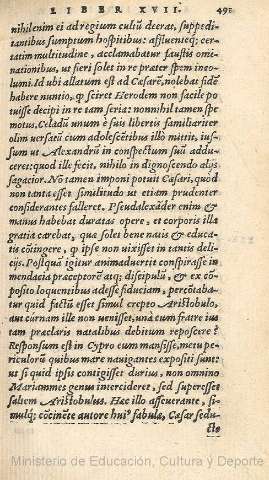 LIBER XVII. 491
nihilenim ei ad regium cultū deerat, suppedi
tantibus sumptum hospitibus: affluentq; cer-
tatim multitudine, acclamabatur faustis omi
nationibus, ut fieri solet in re præter spem ineo-
lumi. Id ubi allatum est ad Cæsarē, nolebat fidē
habere nuntio, φ sciret Herodem non facile po
tuisse decipi in re tam seria: nonnihil tamen spe
motus, Celadū unum è suis libertis familiariter
olim uersatū cum adolescētibus illō mittit, ius-
sum ut Alexandrū in conspectum suū addu-
ceret: quod ille fecit, nihilo in dignoscendo alijs
sagacior. No tamen imponi potuit Cæsari, quod
non tanta esset similitudo ut etiam prudenter
considerantes falleret. Pseudalexāder enim &
manus habebat duratas opere, et corporis illa
gratia carebat, quæ solet bene natis & educa-
tis cōtingere, φ ipse non uixisset in tantis deli-
cijs. Postquā igitur animaduertit conspirasse in
mendacia præceptorē atq; discipulū, & ex cō-
posito loquentibus adesse fiduciam, percōtaba-
tur quid factū esset simul erepto Aristobulo,
aut curnam ille non uenisset, unā cum fratre ius
tam præclaris natalibus debitum reposcere?
Responsum est in Cypro eum mansisse, metu pe-
riculorū quibus mare nauigantes expositi sunt:
ut si quid ipsis contigisset durius, non omnino
Mariammes genus intercideret, sed superesset
saltem Aristobulus. Hæc illo asseuerante, si-
mulq; cōcinēte autore hui⁹ fabulæ, Cæsar sedu-
cto
Ministerio de Educación, Cultura y Deporte